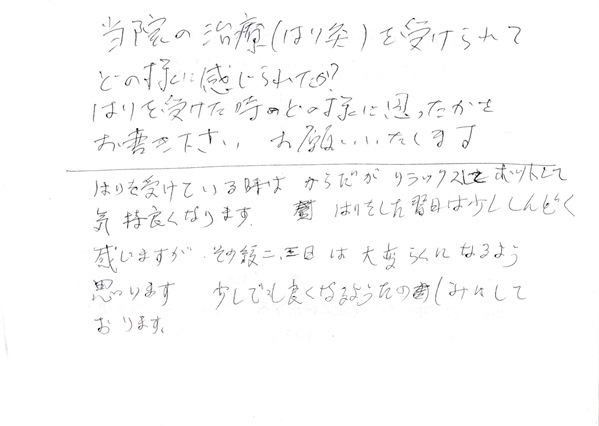 当院の治療(はり灸)を受けられて
どの様に感じられたか?
はりを受けた時のどの様に思ったかを
お書き下さい お願いいたします
はりを受けている時は からだが リラックスして ホットして
気持良くなります. はりをした翌日は少ししんどく
感いますが その後二、三日は大変らくになるよう
思います 少しでも良くなるようたのしみにして
おります.